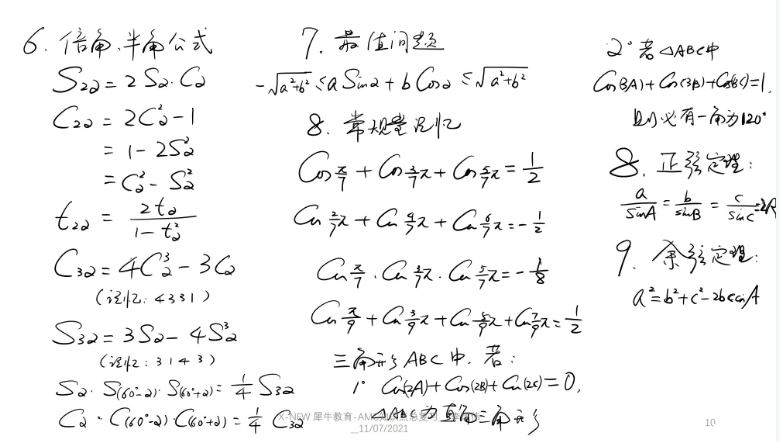 6. 倍角.半角公式
S2α = 2Sα·Cα
C2α = 2C²α-1
= 1-2S²α
= C²α-S²α
t2α = 2tα / 1-t²α
C3α = 4C³α-3Cα
(记忆: 4331)
S3α = 3Sα-4S³α
(记忆: 3143)
Sα·S(60°-α)·S(60°+α) = 1/4 S3α
Cα·C(60°-α)·C(60°+α) = 1/4 C3α
7. 最值问题
-√a²+b² ≤ a Sinα + b Cosα ≤ √a²+b²
8. 常规量记忆
Cos π/7 + Cos 3/7π + Cos 5/7π = 1/2
Cos 2/7π + Cos 4/7π + Cos 6/7π = -1/2
Cos π/7 · Cos 3/7π · Cos 5/7π = -1/8
Cos π/9 + Cos 3/9π + Cos 5/9π + Cos 7/9π = 1/2
三角形ABC中, 若:
1° Cos(2A)+Cos(2B)+Cos(2C)=0,
△ABC为直角三角形
2° 若△ABC中
Cos(3A)+Cos(3B)+Cos(3C)=1,
则必有一角为120°
8. 正弦定理:
a/SinA = b/sinB = c/sinC = 2R
9. 余弦定理:
a²=b²+c²-2bccosA
X-NEW 犀牛教育-AM
11/07/2021
10